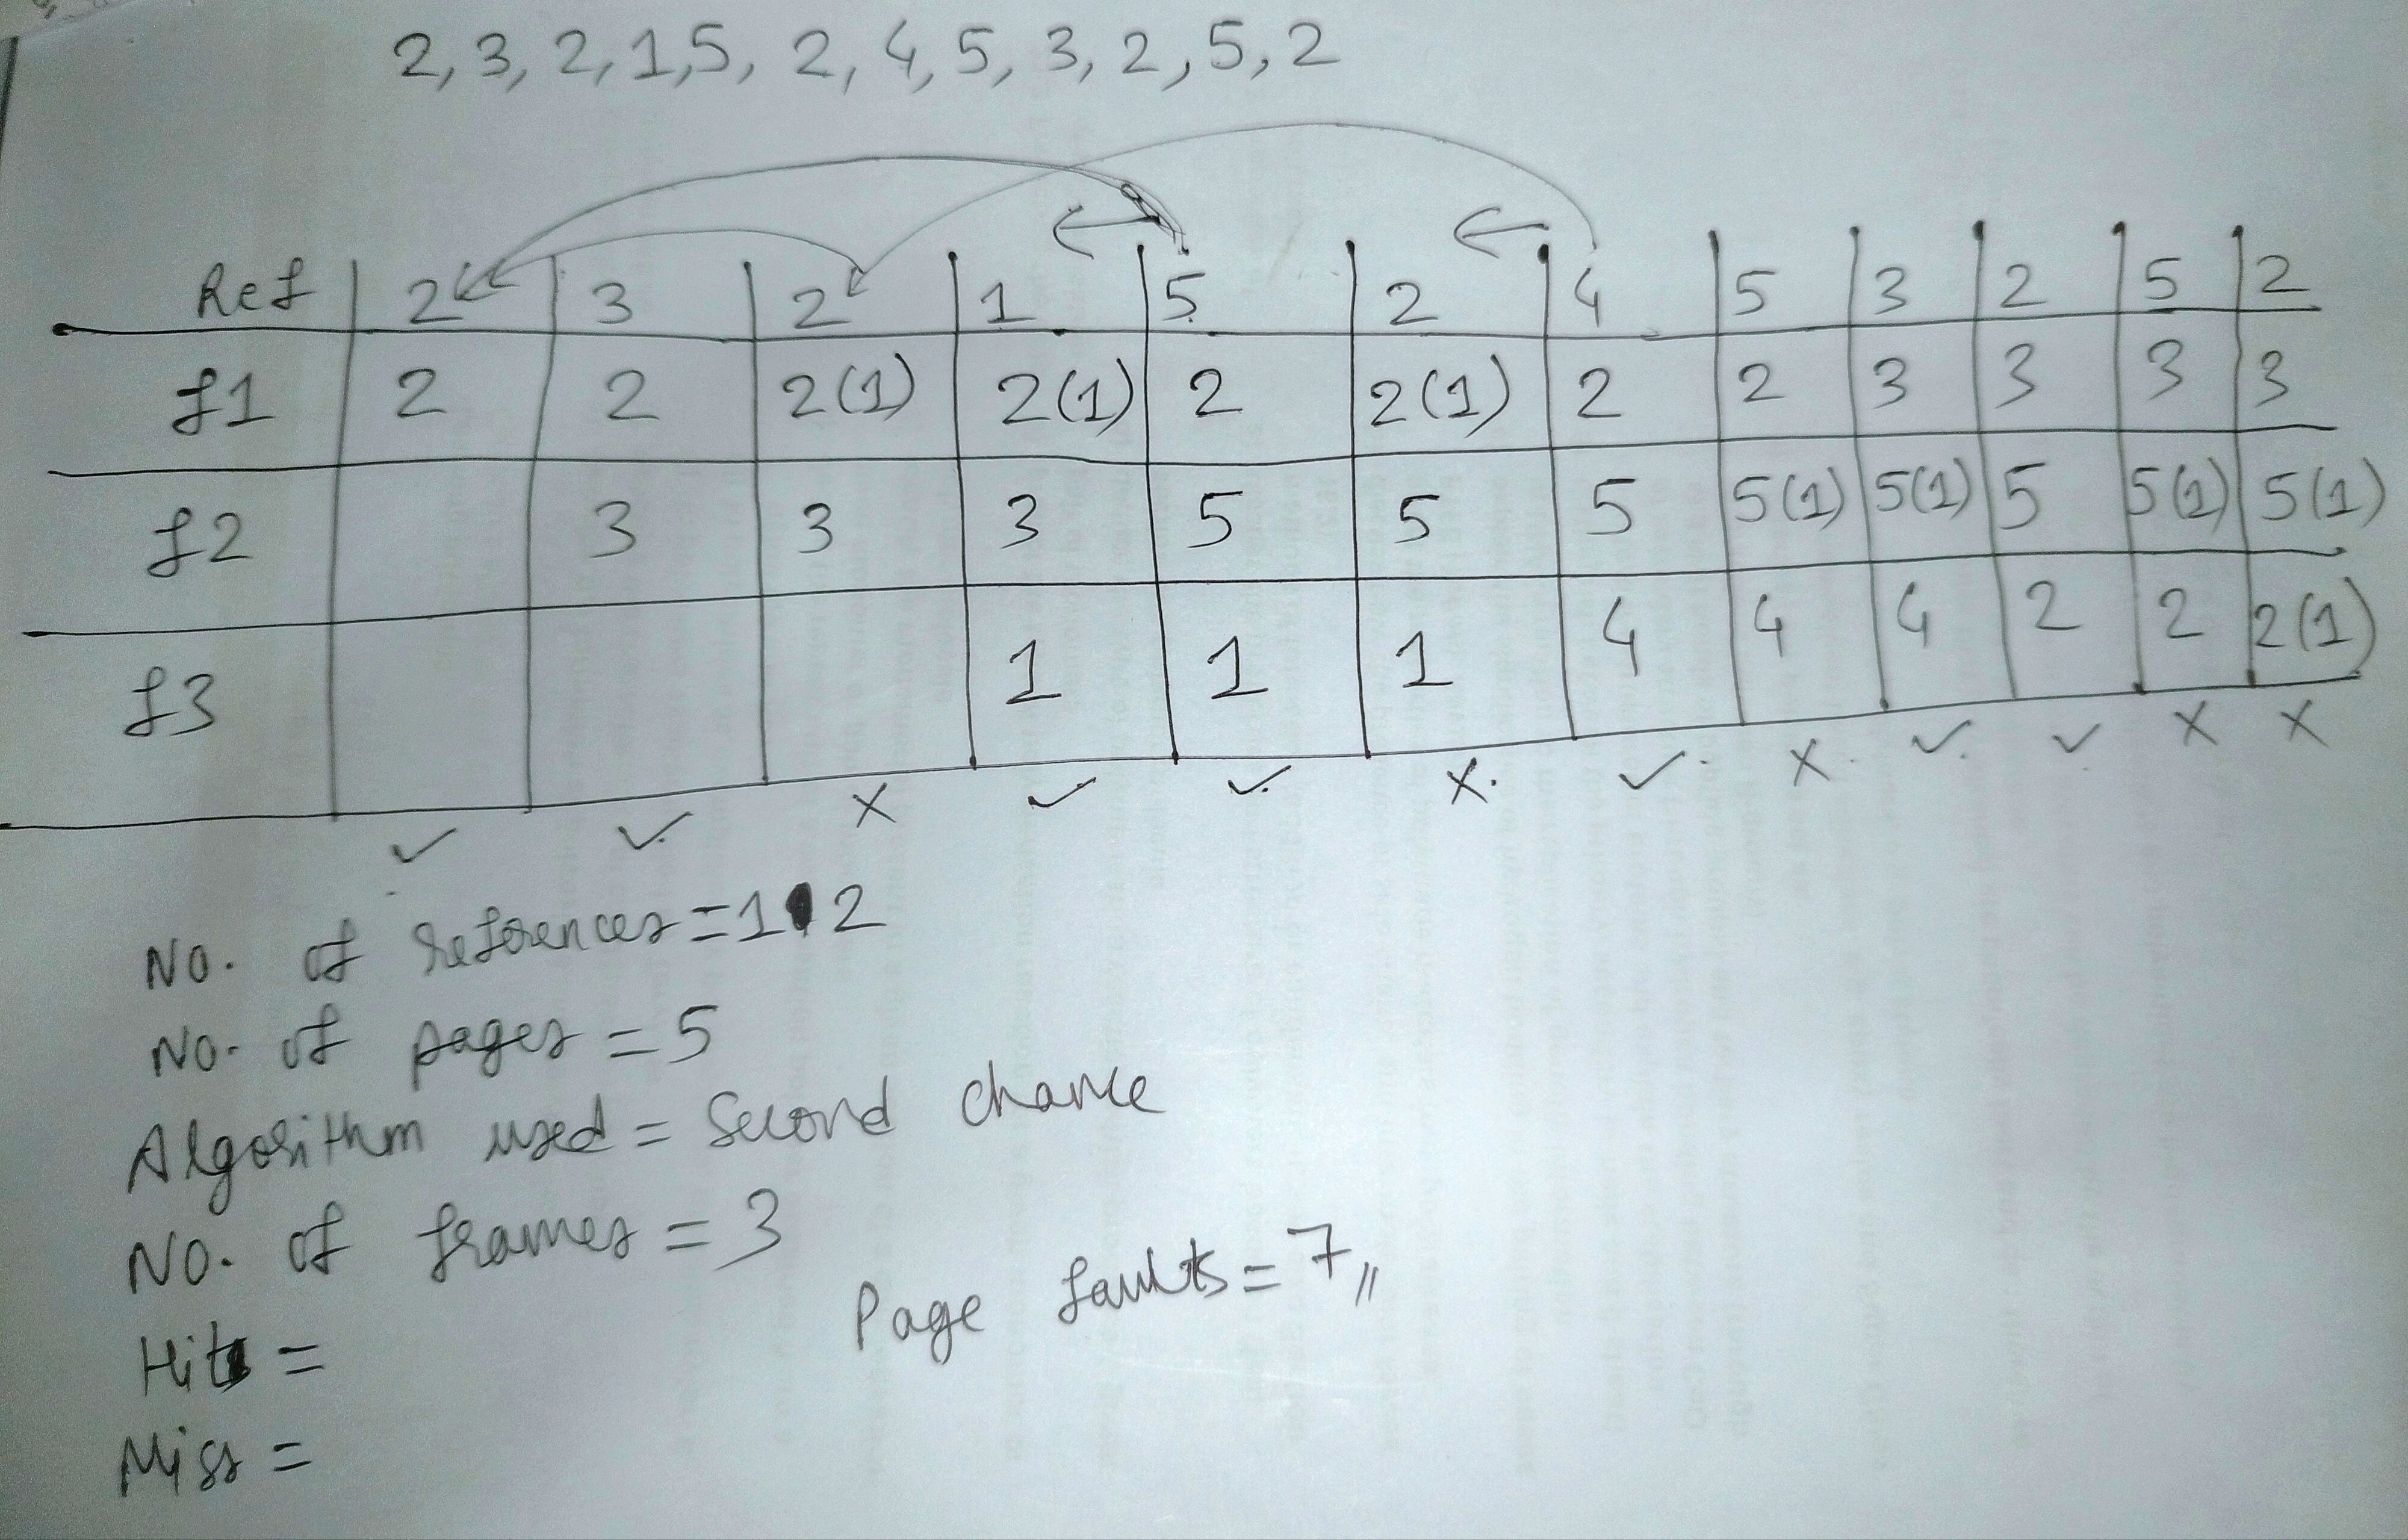 2, 3, 2, 1, 5, 2, 4, 5, 3, 2, 5, 2
Ref 2 3 2 1 5 2 4 5 3 2 5 2
f1 2 2 2(1) 2(1) 2 2(1) 2 2 3 3 3 3
f2 3 3 3 5 5 5 5(1) 5(1) 5 5(1) 5(1)
f3 1 1 1 4 4 4 2 2 2(1)
✓ ✓ X ✓ ✓ X. ✓. X. ✓. ✓ X X
No. of references = 12
No. of pages = 5
Algorithm used = Second chance
No. of frames = 3
Page faults = 7,,
Hits =
Miss =